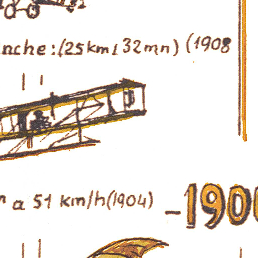 nche:(25km, 32mn) (1908
a 51 km/h(1904)
-1900